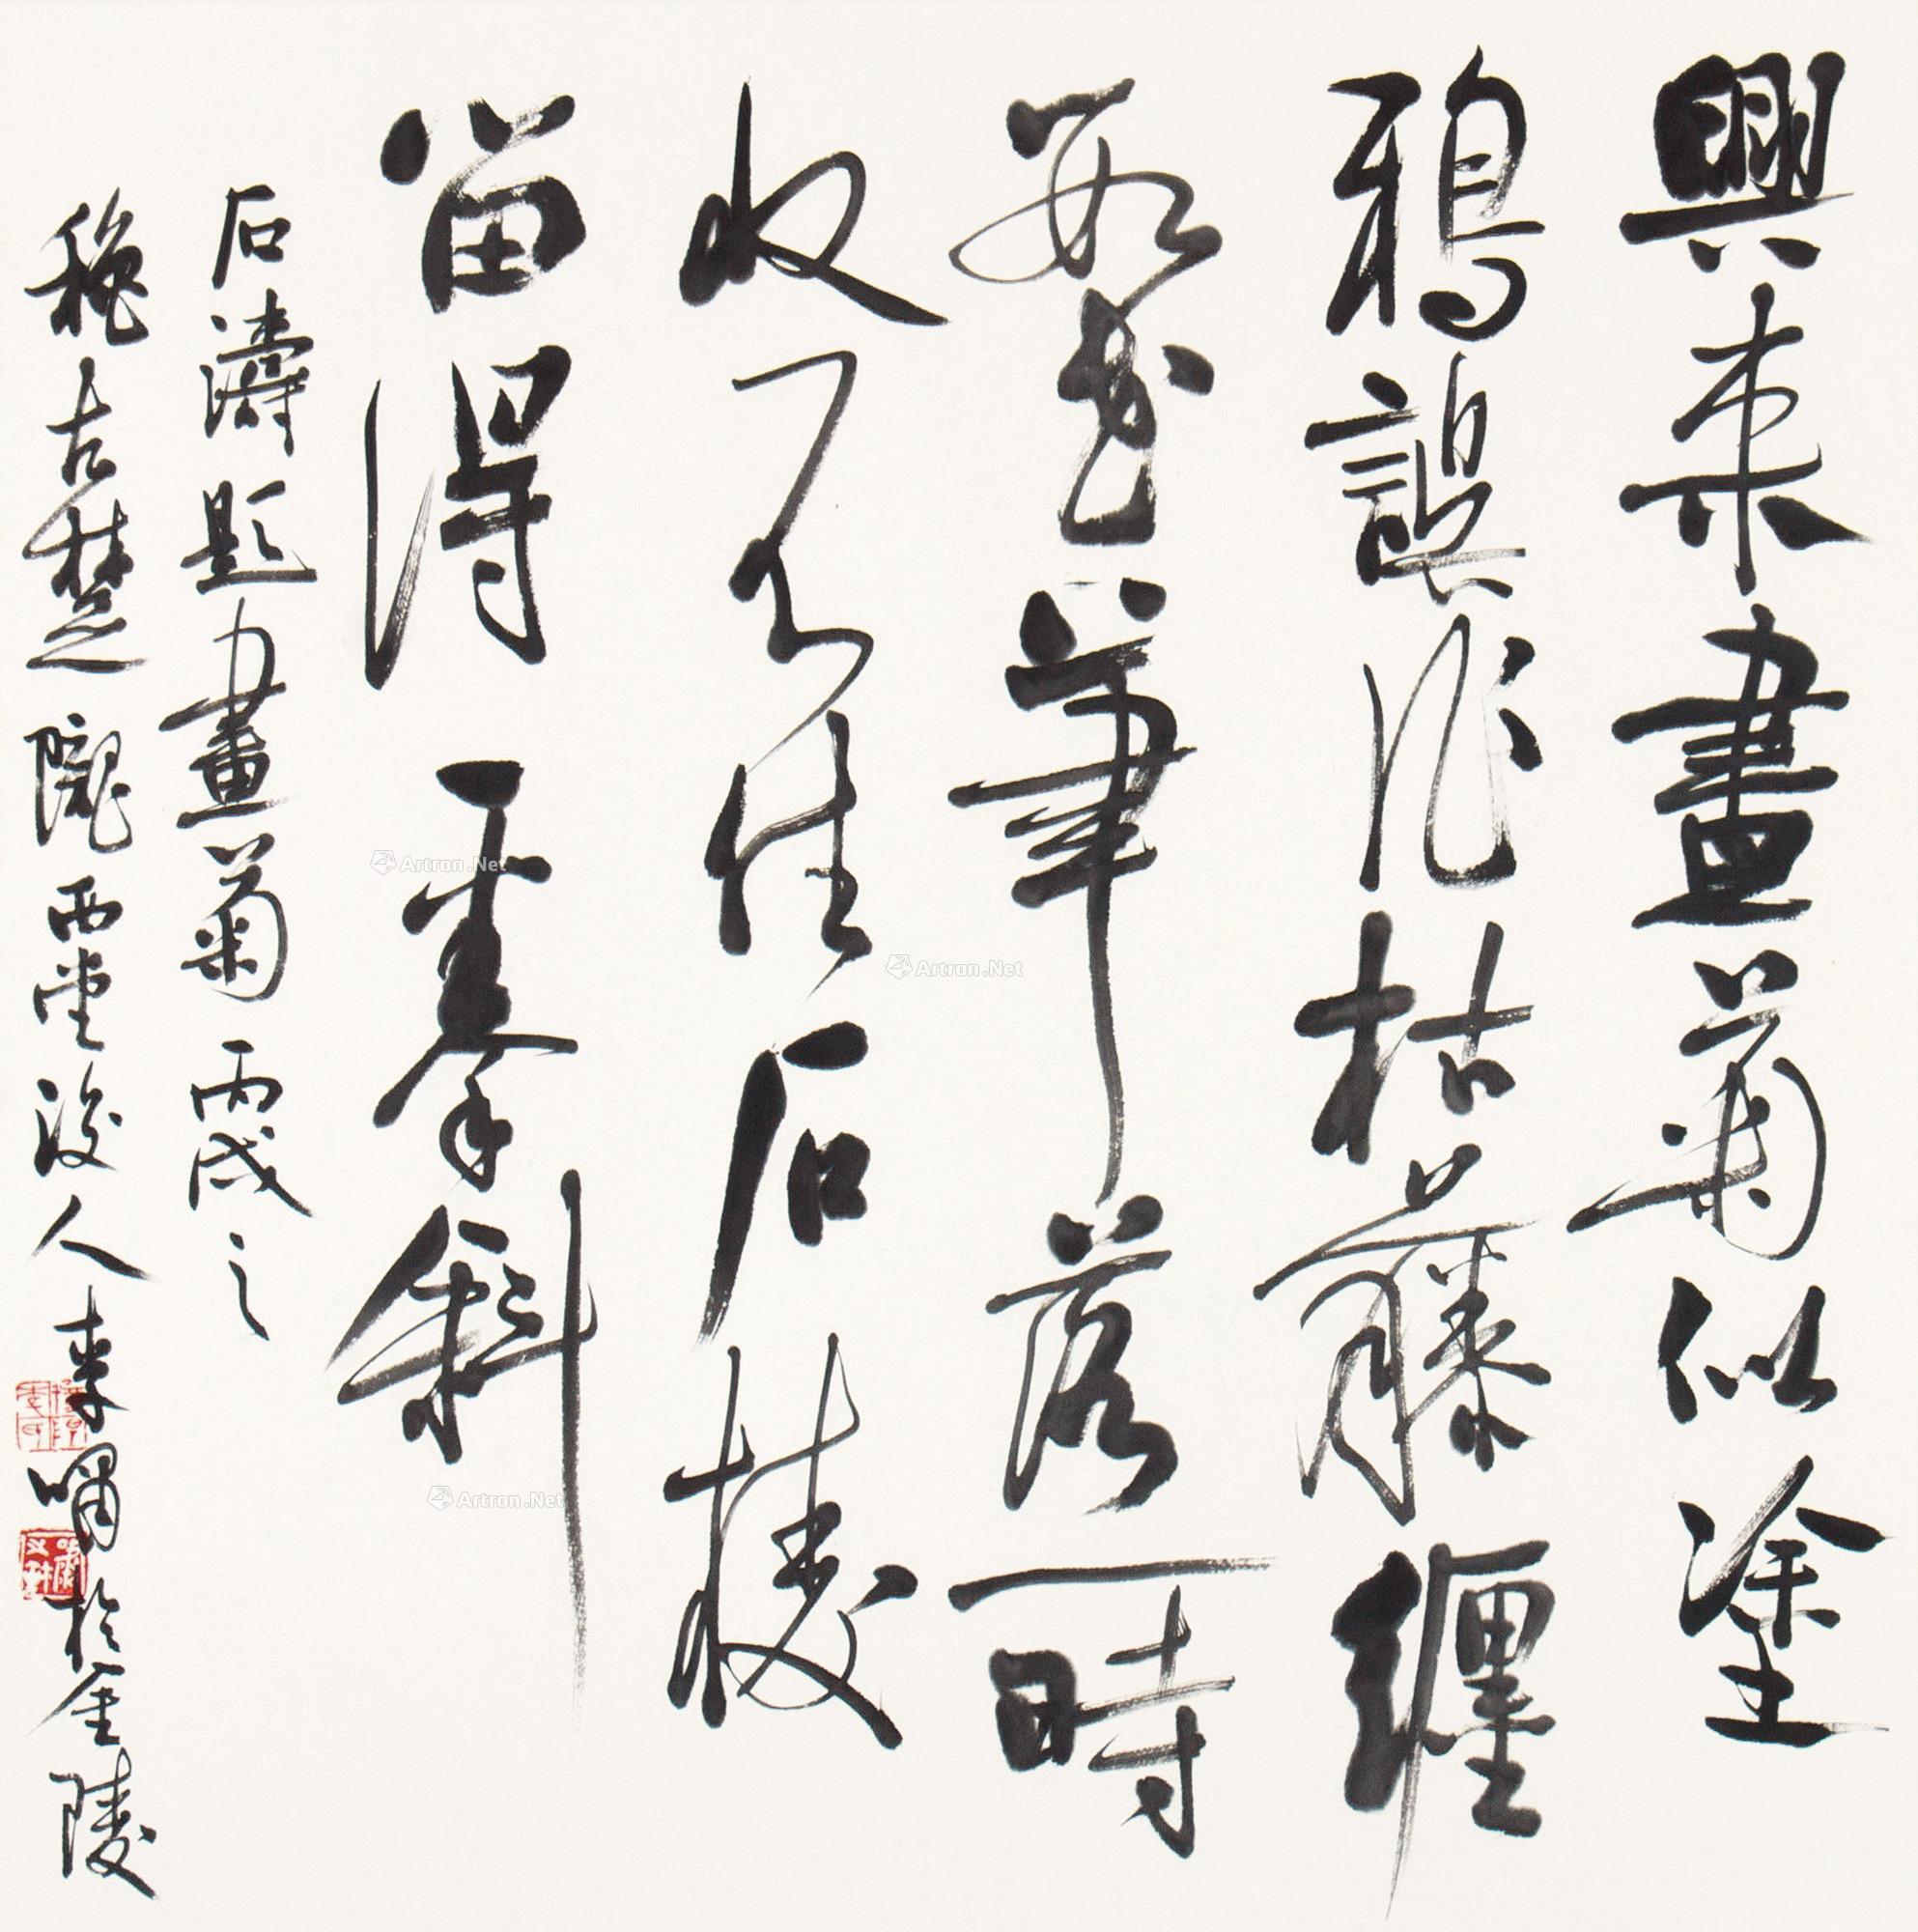 興來畫菊似塗
鴉誤作枯藤纏
數花筆落一時
收不住石棱
留得一拳斜
石濤題畫菊丙戌之
穐古楚隴西堂後人李嘯於金陵
Artron.Net
Artron.Net
Artron.Net